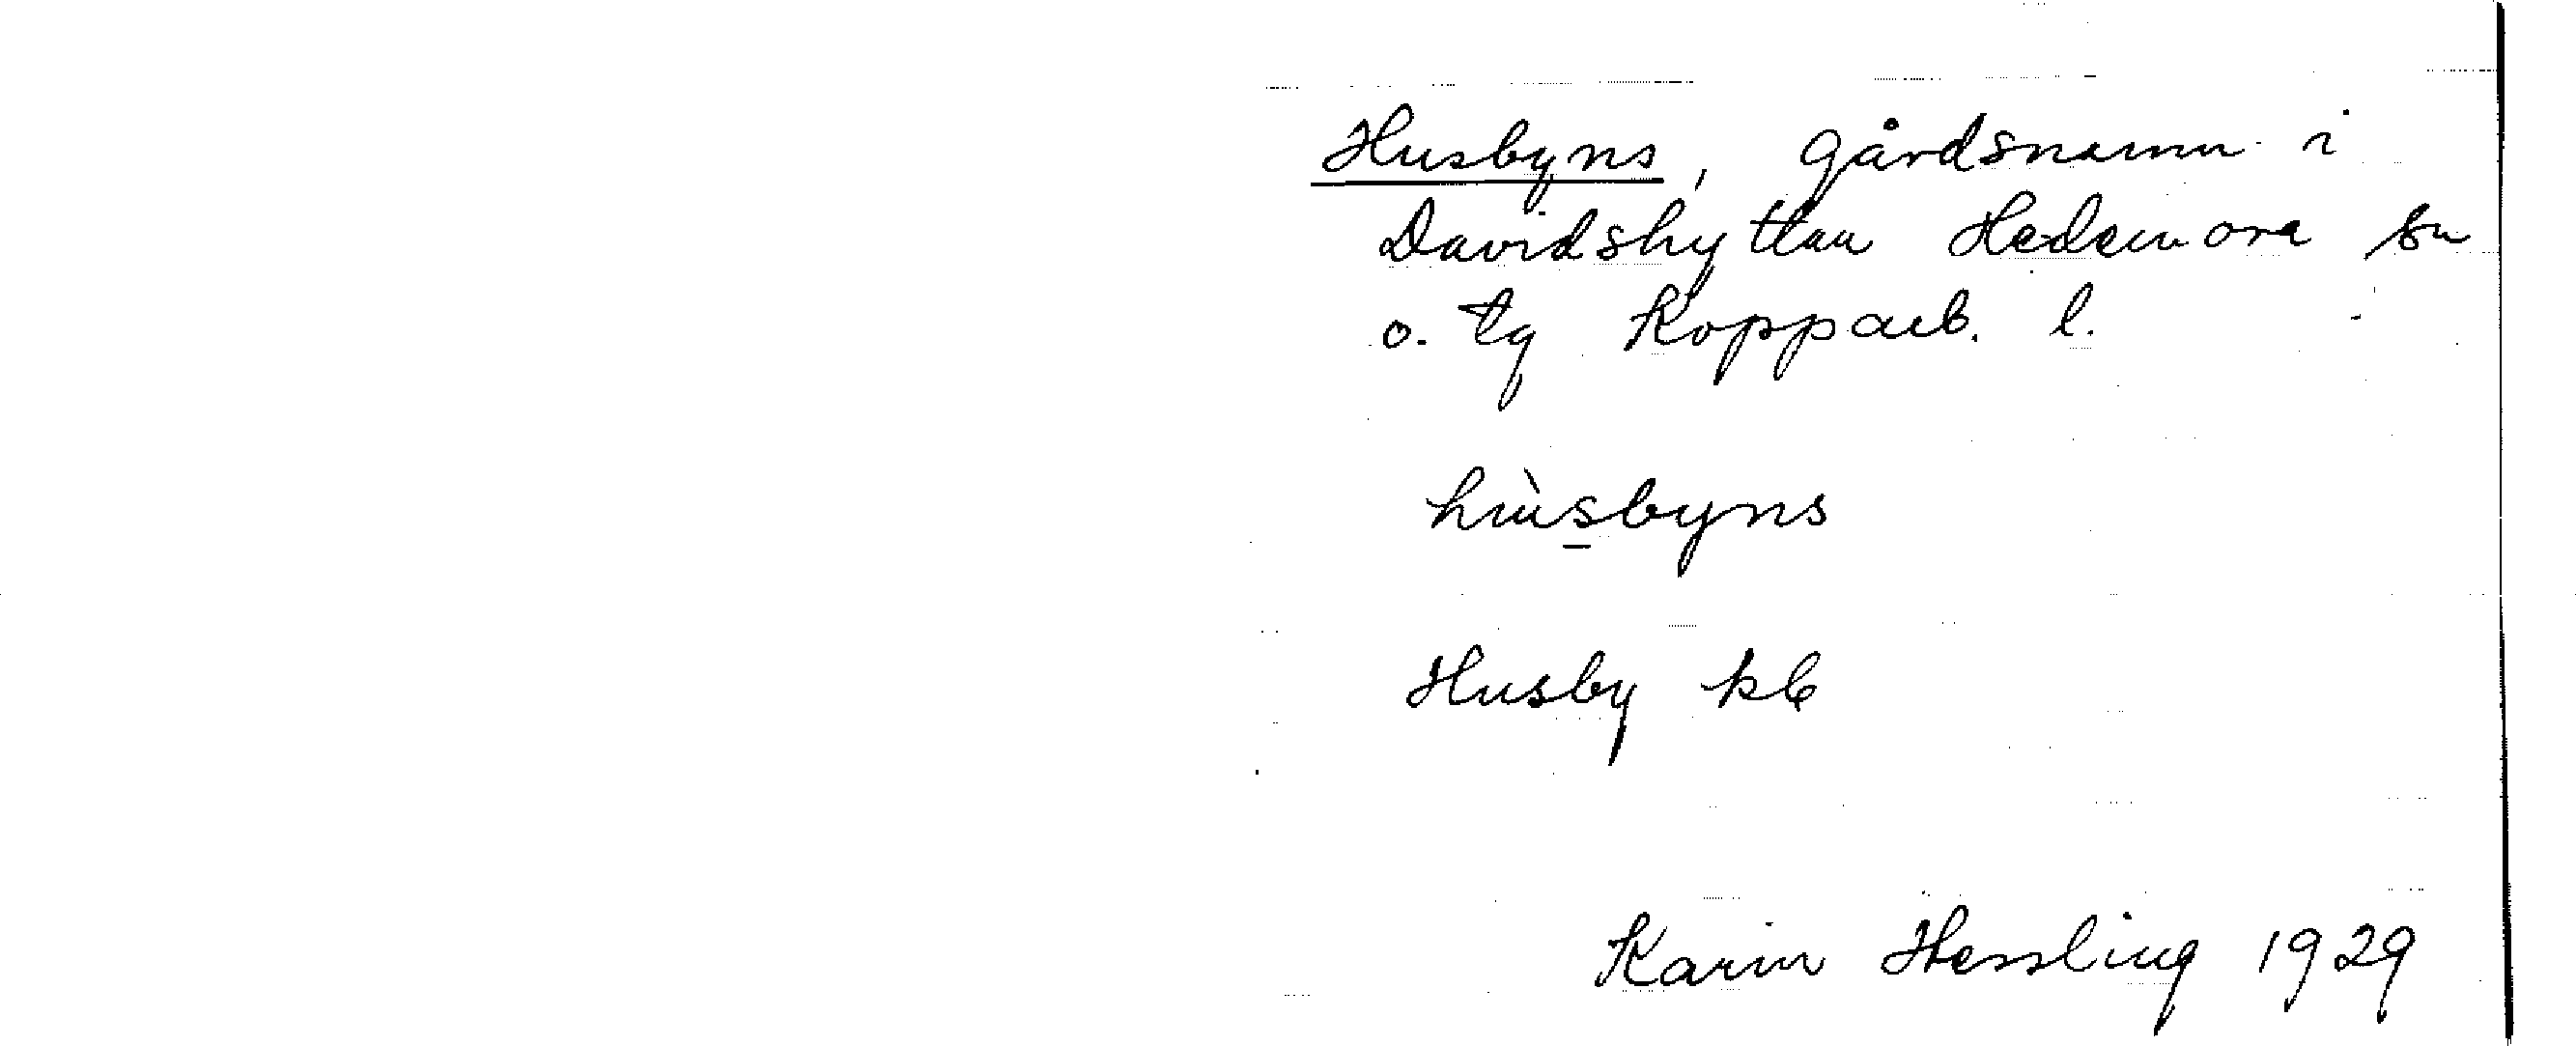 Husbyns, gårdsnamn i
Davidshyttan Hedemora sn
o. tg Kopparb. l.
hùsbyns
Husby kb
Karin Hessling 1929